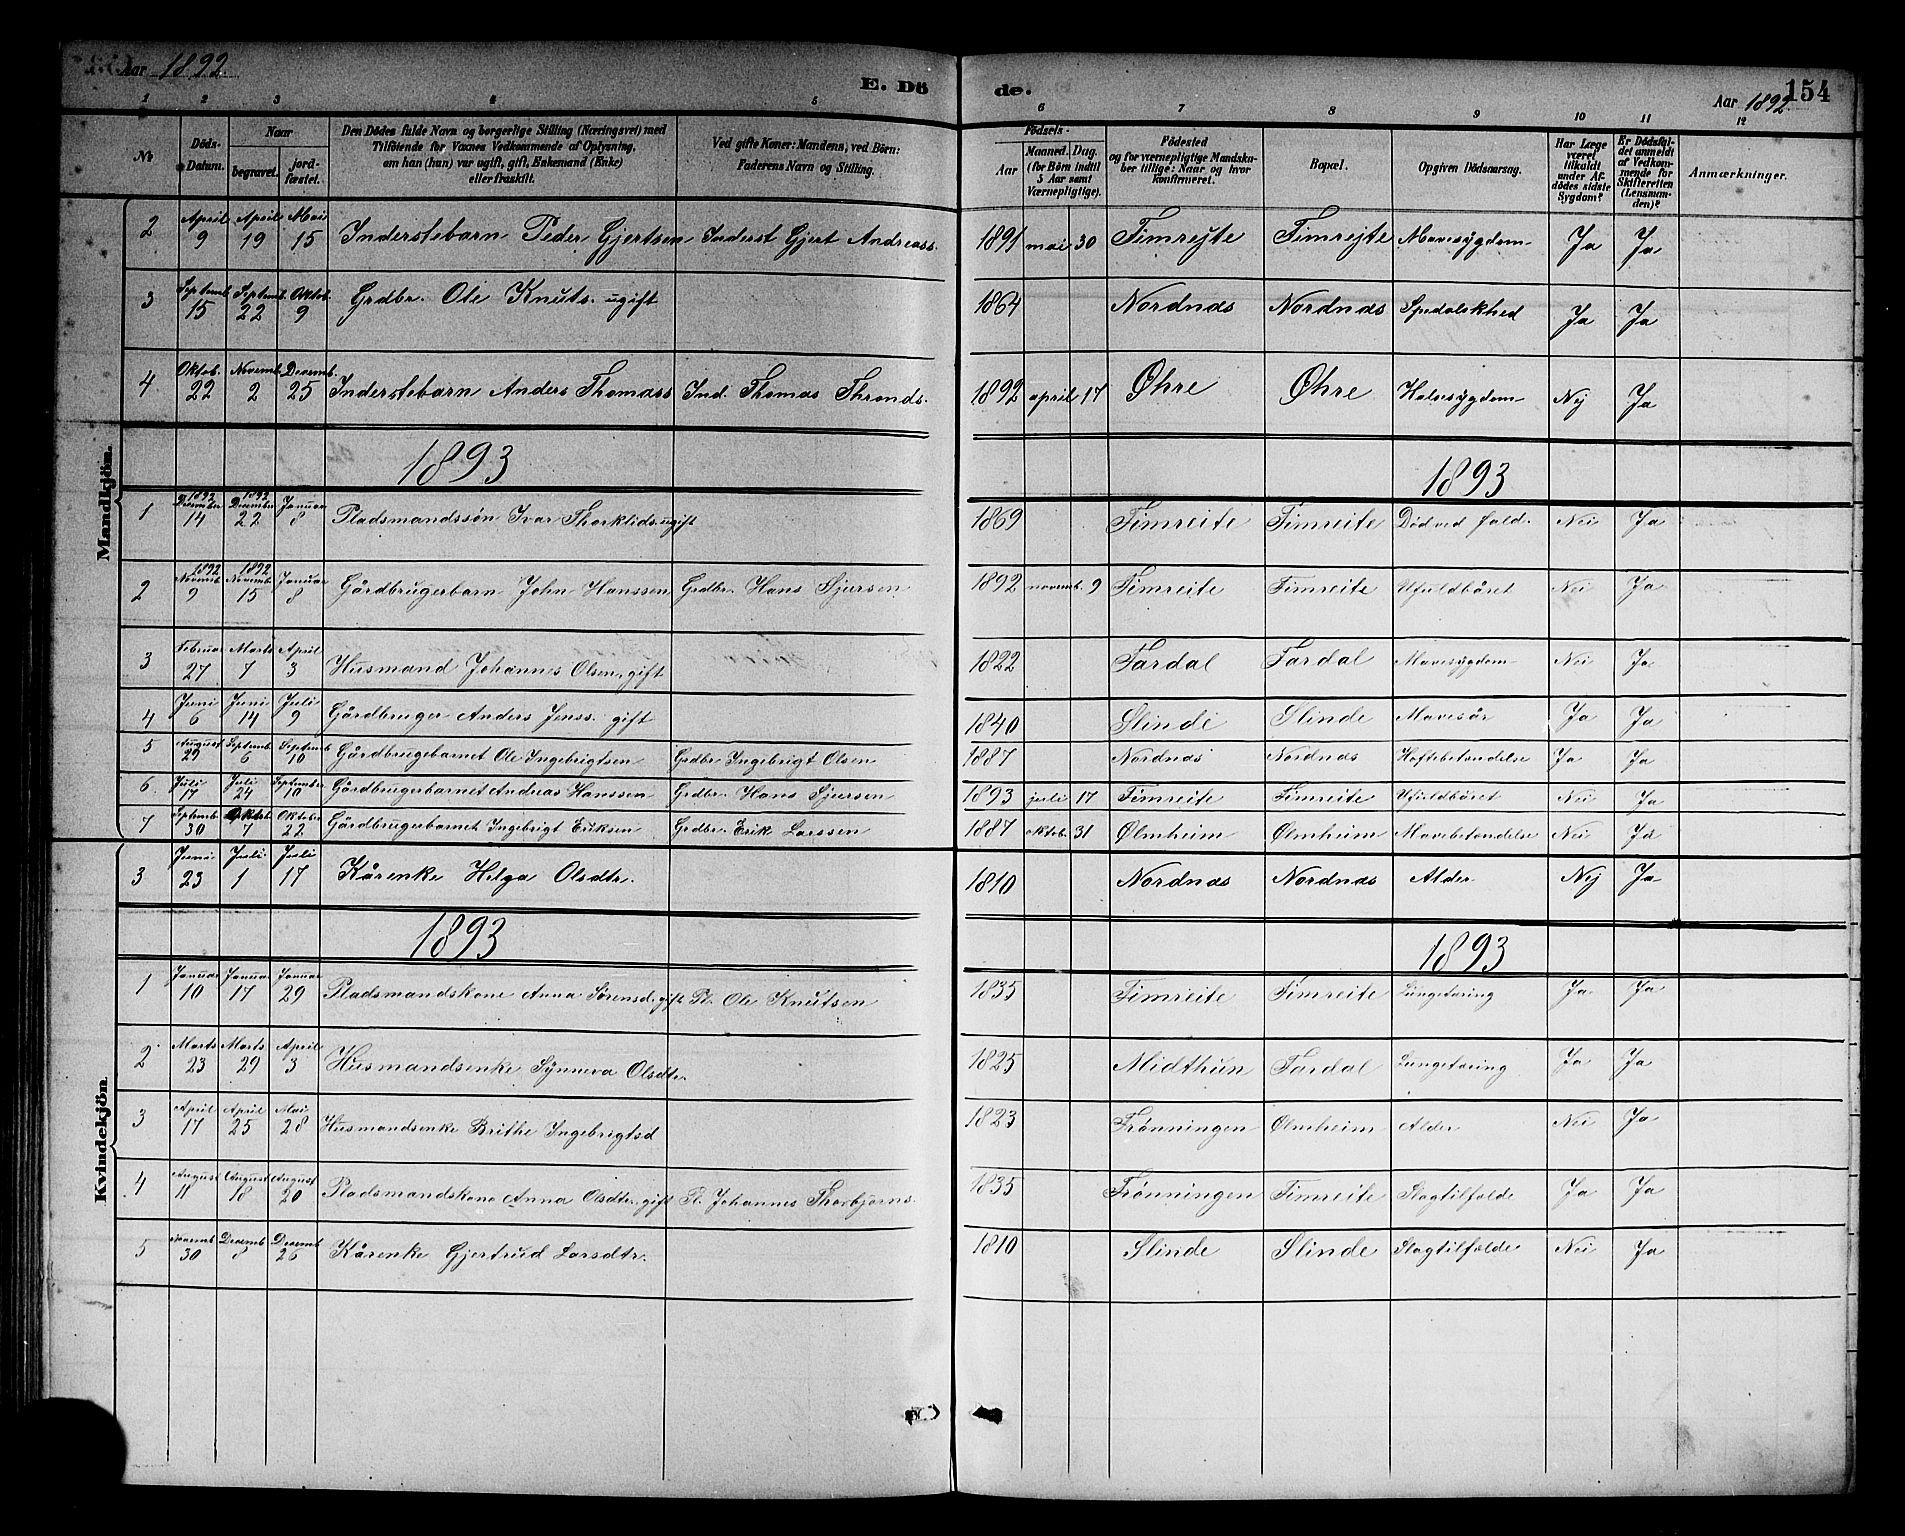 Aar 1892
E. Dö de.
Aar 1892.
154
1 2 3 4 5 6 7 8 9 10 11 12
№ | Döds-Datum. | Naar begravet. | jordfæstet. | Den Dödes fulde Navn og borgerlige Stilling (Næringsvei) med Tilföiende for Voxnes Vedkommende af Oplysning, om han (hun) var ugift, gift, Enkemand (Enke) eller fraskilt. | Ved gifte Koner: Mandens, ved Börn: Faderens Navn og Stilling. | Födsels- Aar | Maaned. Dag. (for Börn indtil 5 Aar samt Værnepligtige). | Födested og for værnepligtige Mandskaber tillige: Naar og hvor konfirmeret. | Bopæl. | Opgiven Dödsaarsag. | Har Læge været tilkaldt under Afdödes sidste Sygdom? | Er Dödsfaldet anmeldt af Vedkommende for Skifteretten (Lensmanden)? | Anmærkninger.
Mandkjön.
2 | April 9 | April 19 | Mai 15 | Inderstebarn Peder Gjertsen | Inderst Gjert Andreass. | 1891 | mai 30 | Fimrejte | Fimrejte | Mavesygdom | Ja | Ja
3 | Septemb. 15 | Septemb. 22 | Oktob. 9 | Grdbr. Ole Knuts. ugift | 1864 | Nordnæs | Nordnæs | Spedalskhed | Ja | Ja
4 | Oktob. 22 | Novemb. 2 | Decemb. 25 | Inderstebarn Anders Thomass | Ind. Thomas Thronds. | 1892 | april 17 | Øhre | Øhre | Halsesygdom | Nej | Ja
1893 | 1893
1 | 1892 December 14 | 1892 December 22 | Januar 8 | Pladsmandssön Ivar Thorkilds. ugift | 1869 | Fimreite | Fimreite | Död ved fald. | Nei | Ja
2 | 1892 Novemb. 9 | 1892 Novemb. 15 | Januar 8 | Gårdbrugerbarn John Hanssen | Grdbr. Hans Sjursen | 1892 | novemb. 9 | Fimreite | Fimreite | Ufuldbåret | Nei | Ja
3 | Februar 27 | Marts 7 | April 3 | Husmand Johannes Olsen, gift | 1822 | Fardal | Fardal | Mavesygdom | Nei | Ja
4 | Juni 6 | Juni 14 | Juli 9 | Gårdbruger Anders Jenss. gift | 1840 | Slinde | Slinde | Mavesår | Ja | Ja
5 | August 29 | Septemb. 6 | Septemb 10 | Gårdbrugebarnet Ole Ingebrigtsen | Grdbr Ingebrigt Olsen | 1887 | Nordnæs | Nordnæs | Hoftebetændelse | Ja | Ja
6. | Juli 17 | Juli 24 | September 10 | Gårdbrugerbarnet Andreas Hanssen | Grdbr. Hans Sjursen | 1893 | juli 17 | Fimreite | Fimreite | Ufuldbåret | Nei | Ja
7 | Septemb. 30 | Oktob. 7 | Oktober 22 | Gårdbrugerbarnet Ingebrigt Eriksen | Grdbr. Erik Larssen | 1887 | oktob. 31 | Ølmheim | Ølmheim | Mavebetændelse | Nei | Ja
Kvindekjön.
3 | Juni 23 | Juli 1 | Juli 17 | Kårenke Helga Olsdtr. | 1810 | Nordnæs | Nordnæs | Alder | Nej | Ja
1893 | 1893
1 | Januar 10 | Januar 17 | Januar 29 | Pladsmandskone Anna Sørensd. gift | Pl. Ole Knutsen | 1835 | Fimreite | Fimreite | Lungetæring | Ja | Ja
2 | Marts 23 | Marts 29 | April 3 | Husmandsenke Synneva Olsdtr. | 1825 | Midthun | Fardal | Lungetæring | Ja | Ja
3 | April 17 | April 25 | Mai 28 | Husmandsenke Brithe Ingebrigtsd | 1823 | Frønningen | Ølmheim | Alder | Nei | Ja
4 | August 11 | August 18 | August 20 | Pladsmandskone Anna Olsdtr. gift | Pl. Johannes Thorbjørns. | 1835 | Frønningen | Fimreite | Slagtilfælde | Ja | Ja
5 | Novemb 30 | Decemb 8 | Decemb. 26 | Kårenke Gjertrud Larsdtr. | 1810 | Slinde | Slinde | Slagtilfælde | Nei | Ja